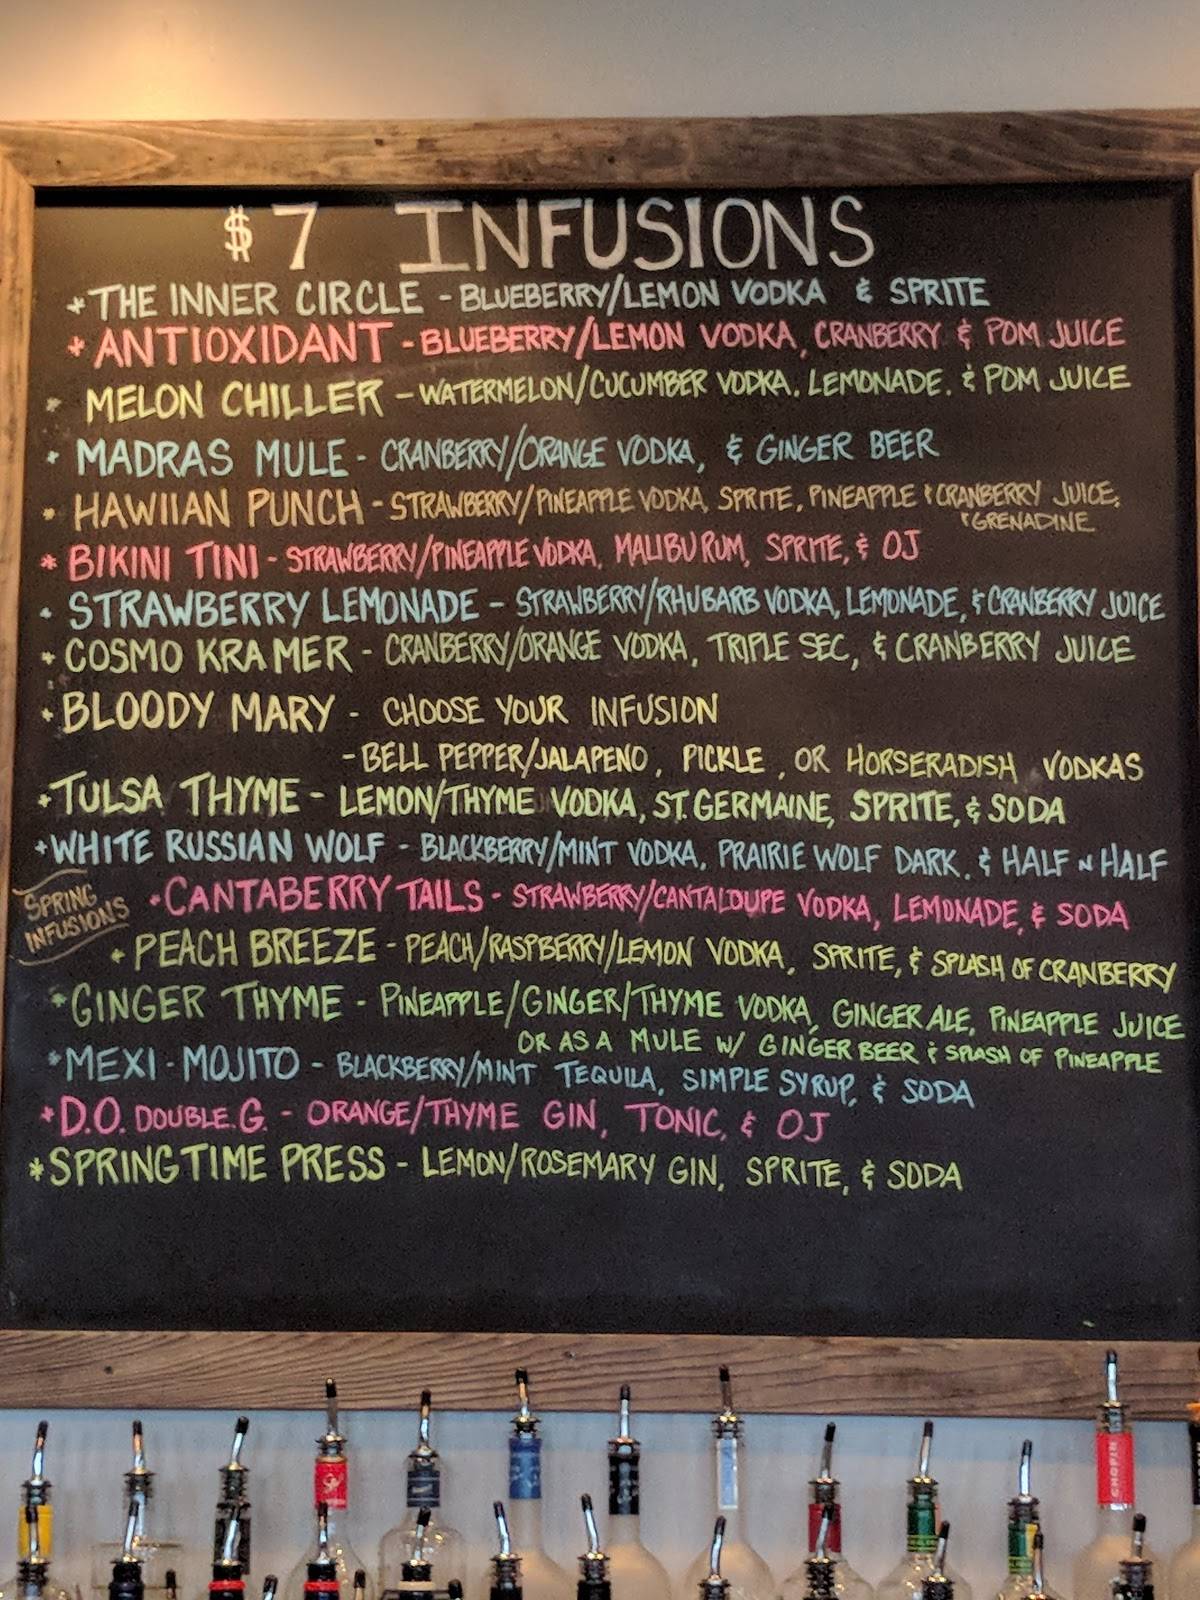 $7 INFUSIONS
*THE INNER CIRCLE - BLUEBERRY/LEMON VODKA & SPRITE
*ANTIOXIDANT - BLUEBERRY/LEMON VODKA, CRANBERRY & POM JUICE
* MELON CHILLER - WATERMELON/CUCUMBER VODKA. LEMONADE. & POM JUICE
* MADRAS MULE - CRANBERRY/ORANGE VODKA, & GINGER BEER
* HAWIIAN PUNCH - STRAWBERRY/PINEAPPLE VODKA, SPRITE, PINEAPPLE & CRANBERRY JUICE,
& GRENADINE
* BIKINI TINI - STRAWBERRY/PINEAPPLE VODKA, MALIBU RUM, SPRITE, & OJ
* STRAWBERRY LEMONADE - STRAWBERRY/RHUBARB VODKA, LEMONADE, & CRANBERRY JUICE
* COSMO KRAMER - CRANBERRY/ORANGE VODKA, TRIPLE SEC, & CRANBERRY JUICE
* BLOODY MARY - CHOOSE YOUR INFUSION
- BELL PEPPER/JALAPENO, PICKLE, OR HORSERADISH VODKAS
* TULSA THYME - LEMON/THYME VODKA, ST. GERMAINE, SPRITE, & SODA
* WHITE RUSSIAN WOLF - BLACKBERRY/MINT VODKA, PRAIRIE WOLF DARK. & HALF N HALF
SPRING
INFUSIONS
* CANTABERRY TAILS - STRAWBERRY/CANTALOUPE VODKA, LEMONADE, & SODA
* PEACH BREEZE - PEACH/RASPBERRY/LEMON VODKA, SPRITE, & SPLASH OF CRANBERRY
* GINGER THYME - PINEAPPLE/GINGER/THYME VODKA, GINGER ALE, PINEAPPLE JUICE
OR AS A MULE W/ GINGER BEER & SPLASH OF PINEAPPLE
* MEXI-MOJITO - BLACKBERRY/MINT TEQUILA, SIMPLE SYRUP, & SODA
* D.O. DOUBLE.G. - ORANGE/THYME GIN, TONIC, & OJ
* SPRINGTIME PRESS - LEMON/ROSEMARY GIN, SPRITE, & SODA
CHOPIN